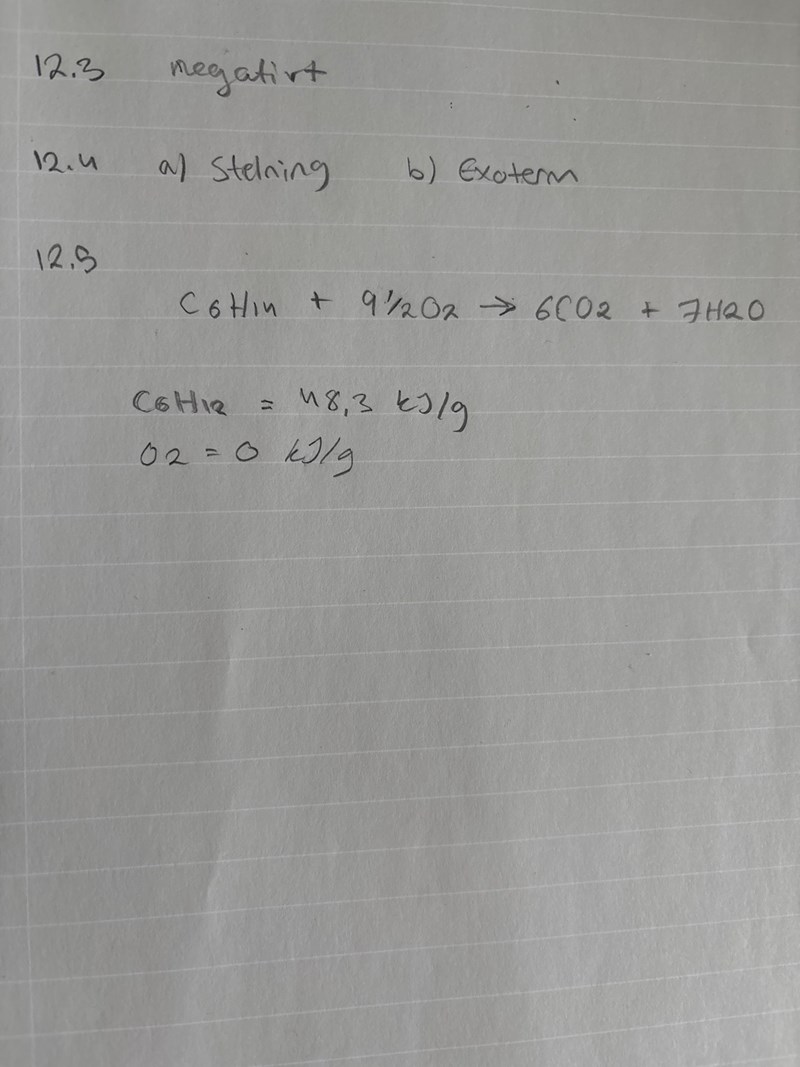 12.3 negativt
12.4 a) Stelning b) Exoterm
12.5
C6H14 + 9 1/2 O2 → 6CO2 + 7H2O
C6H12 = 48,3 kJ/g
O2 = 0 kJ/g